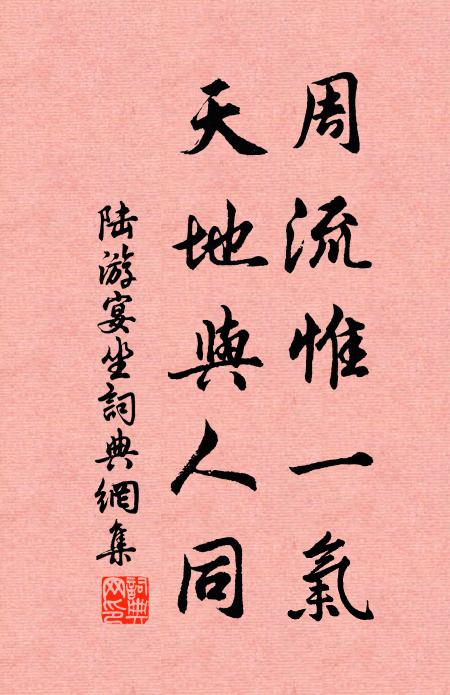 周流惟一氣
天地與人同
陆游宴坐詞典網集
詞典網印